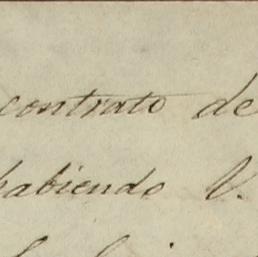 contrato de
habiendo V.